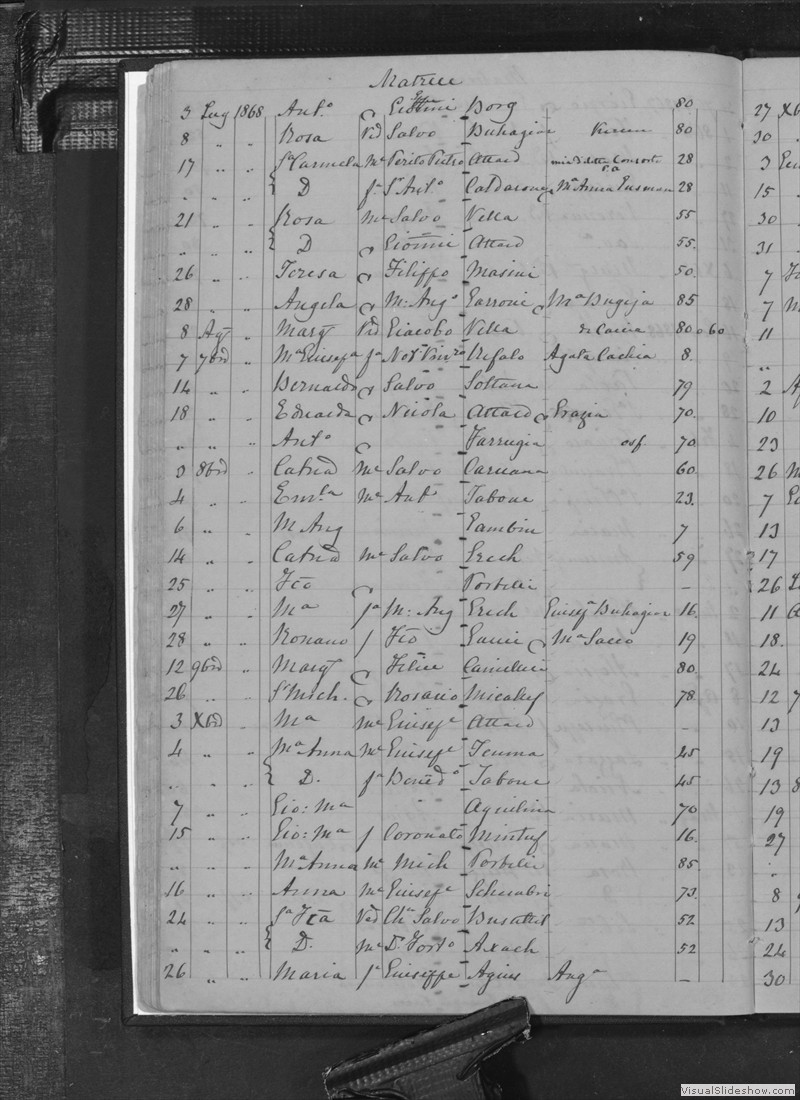 Matrice
3 Lug 1868 Antº Giōnni Borg 80
8 " " Rosa Vid Salvo Buhagiar 80
17 " " Sª Carmela Me Perito Pietro Attard Consorte 28
" " " D fª Sr Antº Caldarone Mª Anna Eusman 28
21 " " Rosa Me Salvo Vella 55
" " " D Giōnni Attard 55.
26 " " Teresa Filippo Masini 50.
28 " " Angela M: Angº Garroni Mª Bugeja 85
8 Agt " Margt Vid Giacobo Vella 80 0 60
7 7bre " Mª Giusepa fª Notr Vinzo Refalo Agata Cachia 8.
14 " " Bernardo Salvo Soltana 79
18 " " Eduarda Nicola Attard Grazia 70.
" " " Antº Farrugia osp. 70
3 8bre " Catna Me Salvo Caruana 60.
4 " " Emla Me Antº Tabone 23.
6 " " M Ang Gambin 7
14 " " Catna Me Salvo Grech 59
25 " " Fcō Portelli –
27 " " Mª fª M: Ang Grech Giusepª Buhagiar 16.
28 " " Romano f Fcō Gauci Mª Sacco 19
12 9bre " Margt Felice Camilleri 80.
26 " " Sr Mich. Rosario Micallef 78.
3 Xbre " Mª Me Giusepe Attard –
4 " " Mª Anna Me Giusepe Teuma 45
" " " D. fª Benedº Tabone 45
7 " " Gio: Mª Aquilina 70
15 " " Gio: Mª f Coronato Mintuf 16.
" " " Mª Anna Me Mich Portelli 85.
16 " " Anna Me Giusepe Schembri 73.
24 " " Sª Fcā Vid Chr Salvo Busuttil 52.
" " " D. Me Dr Fortº Axach 52
26 " " Maria fª Giuseppe Agius Angª –
27 Xb
30
3 Gen
15
30
31
7
7 M
11
"
2 A
10
23
26 M
7
13
17
26
11 A
18.
24
12
13
19
13
19
27
"
8
13
24
30
VisualSlideshow.com